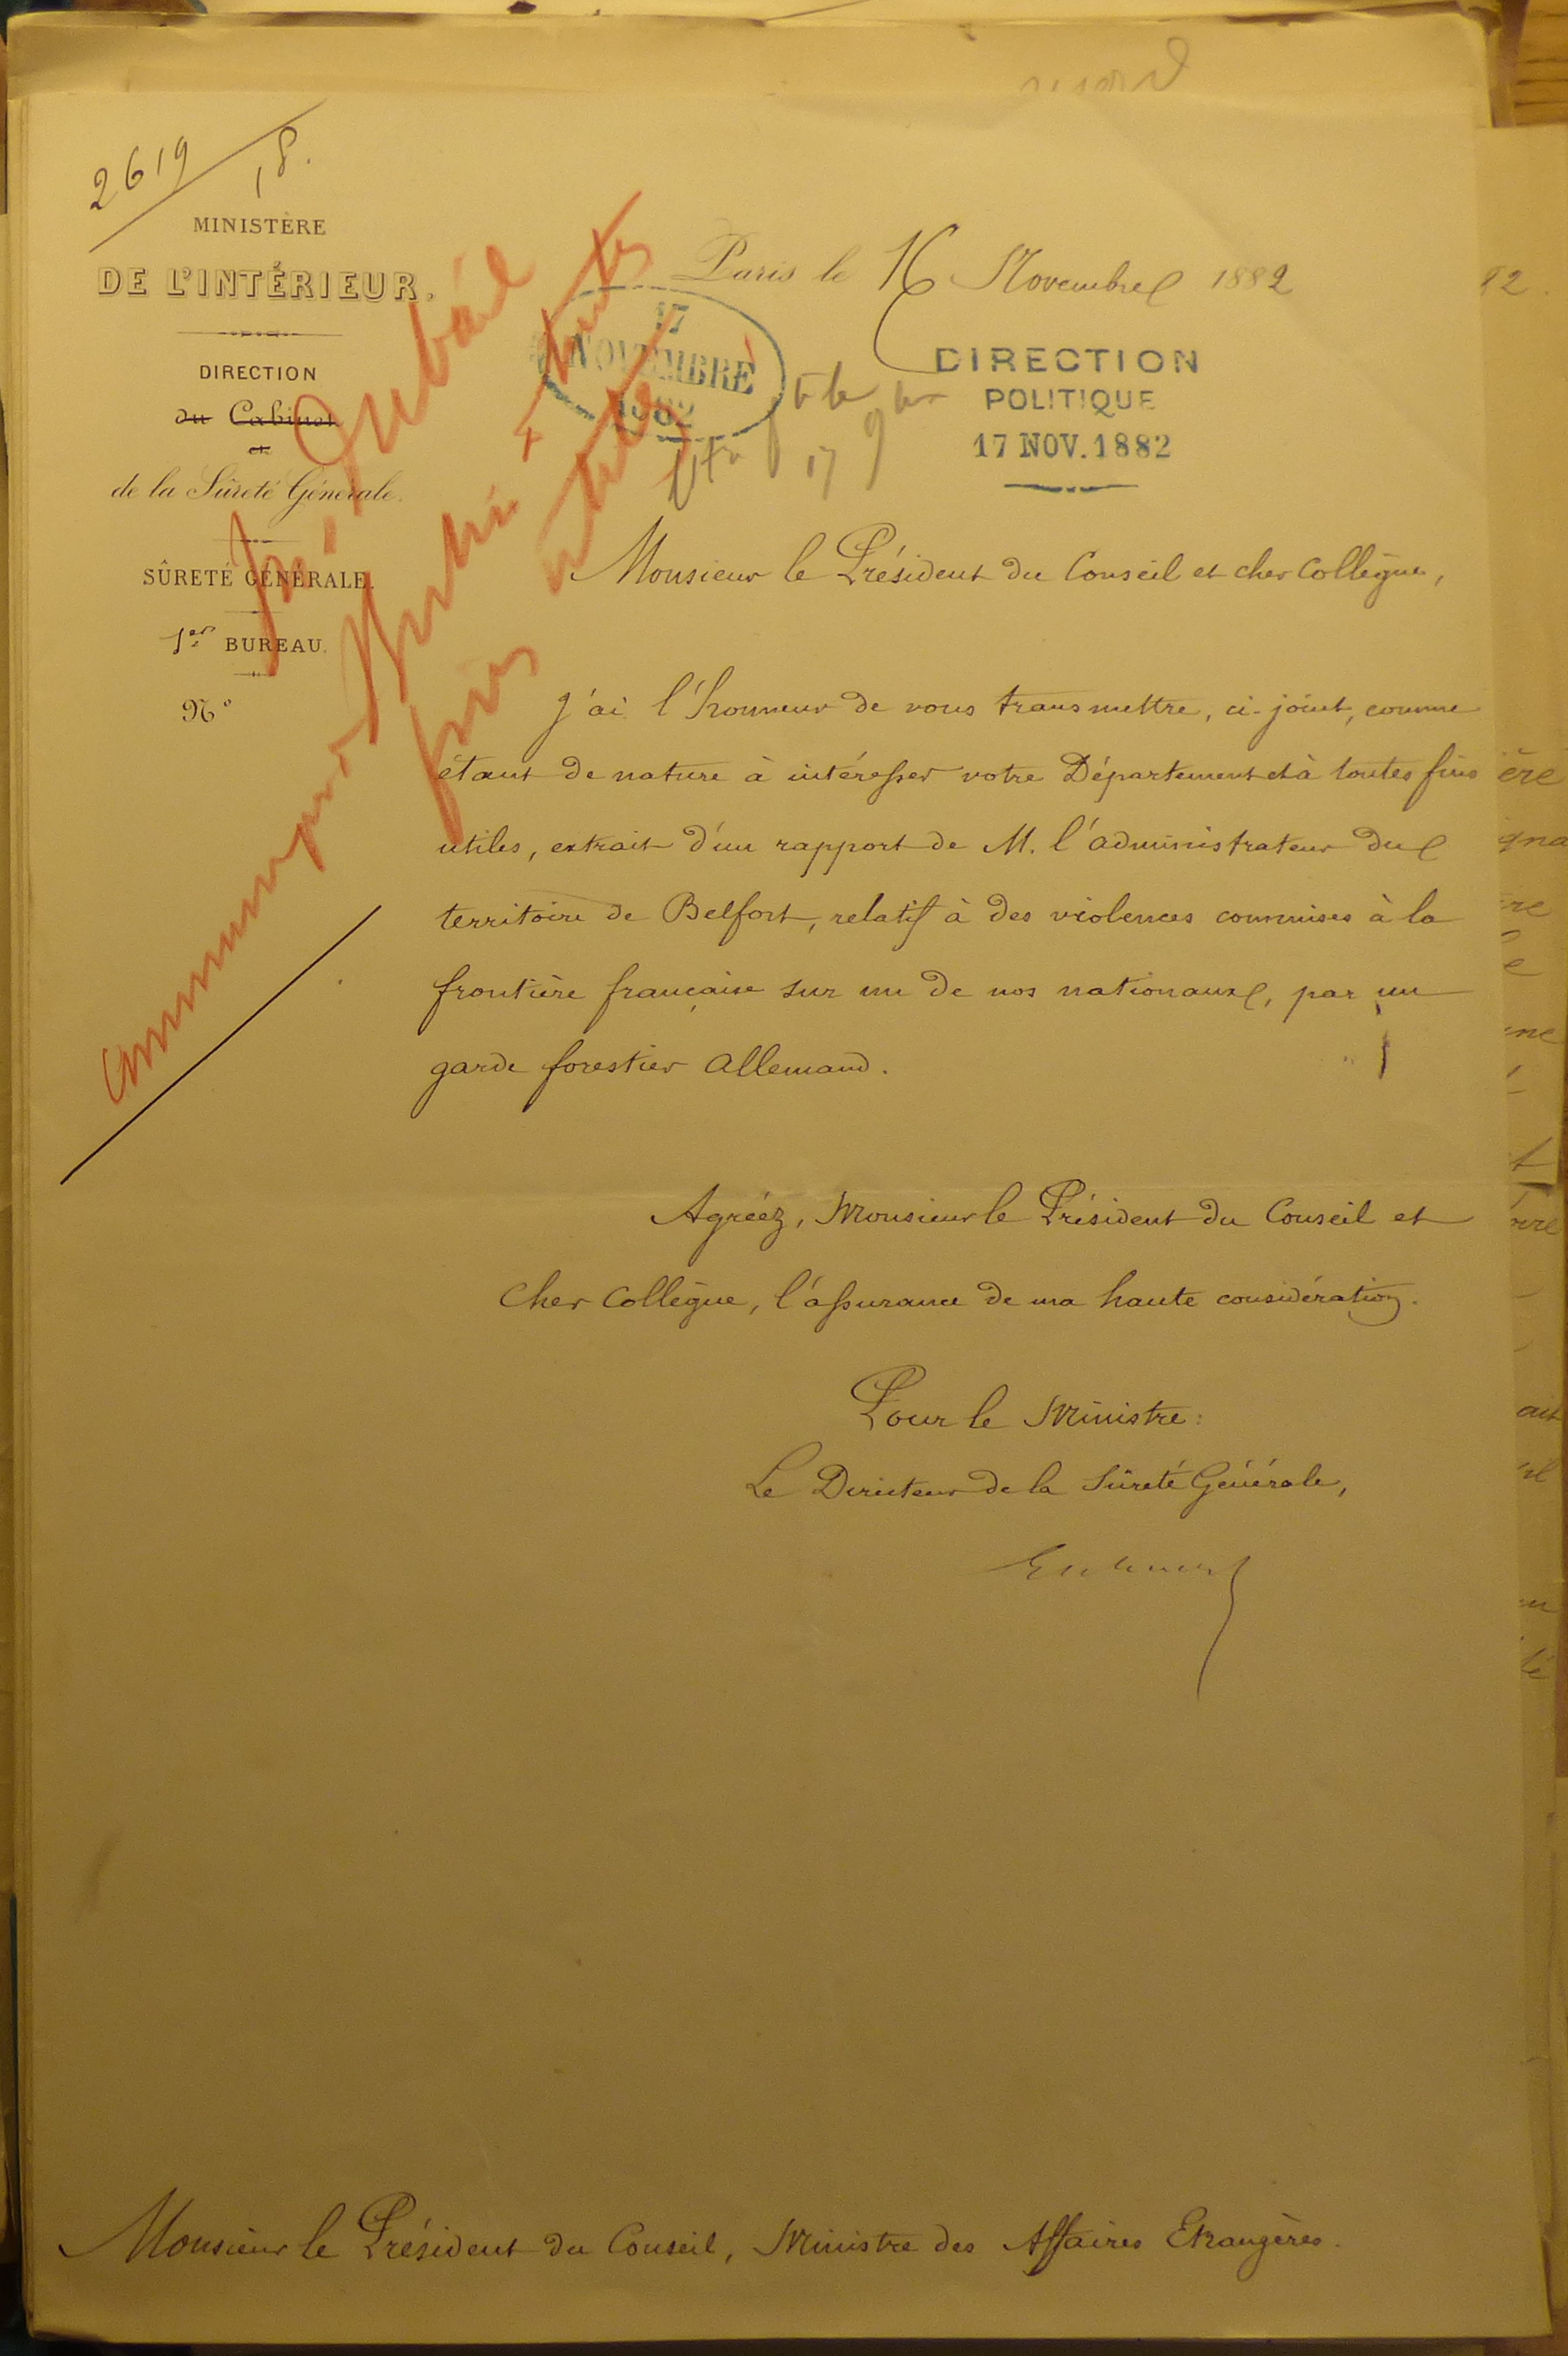 2619
18.
MINISTÈRE
DE L'INTÉRIEUR.
DIRECTION
du Cabinet
et
de la Sûreté Générale.
SÛRETÉ GÉNÉRALE.
1er BUREAU.
No
Paris le 16 Novembre 1882
17
NOVEMBRE
1882
DIRECTION
POLITIQUE
17 NOV. 1882
17 9
toutes
fins utiles
Monsieur le Président du Conseil et cher Collègue,
J'ai l'honneur de vous transmettre, ci-joint, comme
étant de nature à intéresser votre Département et à toutes fins
utiles, extrait d'un rapport de M. l'administrateur du
territoire de Belfort, relatif à des violences commises à la
frontière française sur un de nos nationaux, par un
garde forestier allemand.
Agréez, Monsieur le Président du Conseil et
Cher Collègue, l'assurance de ma haute considération.
Pour le Ministre:
Le Directeur de la Sûreté Générale,
Monsieur le Président du Conseil, Ministre des Affaires Etrangères.